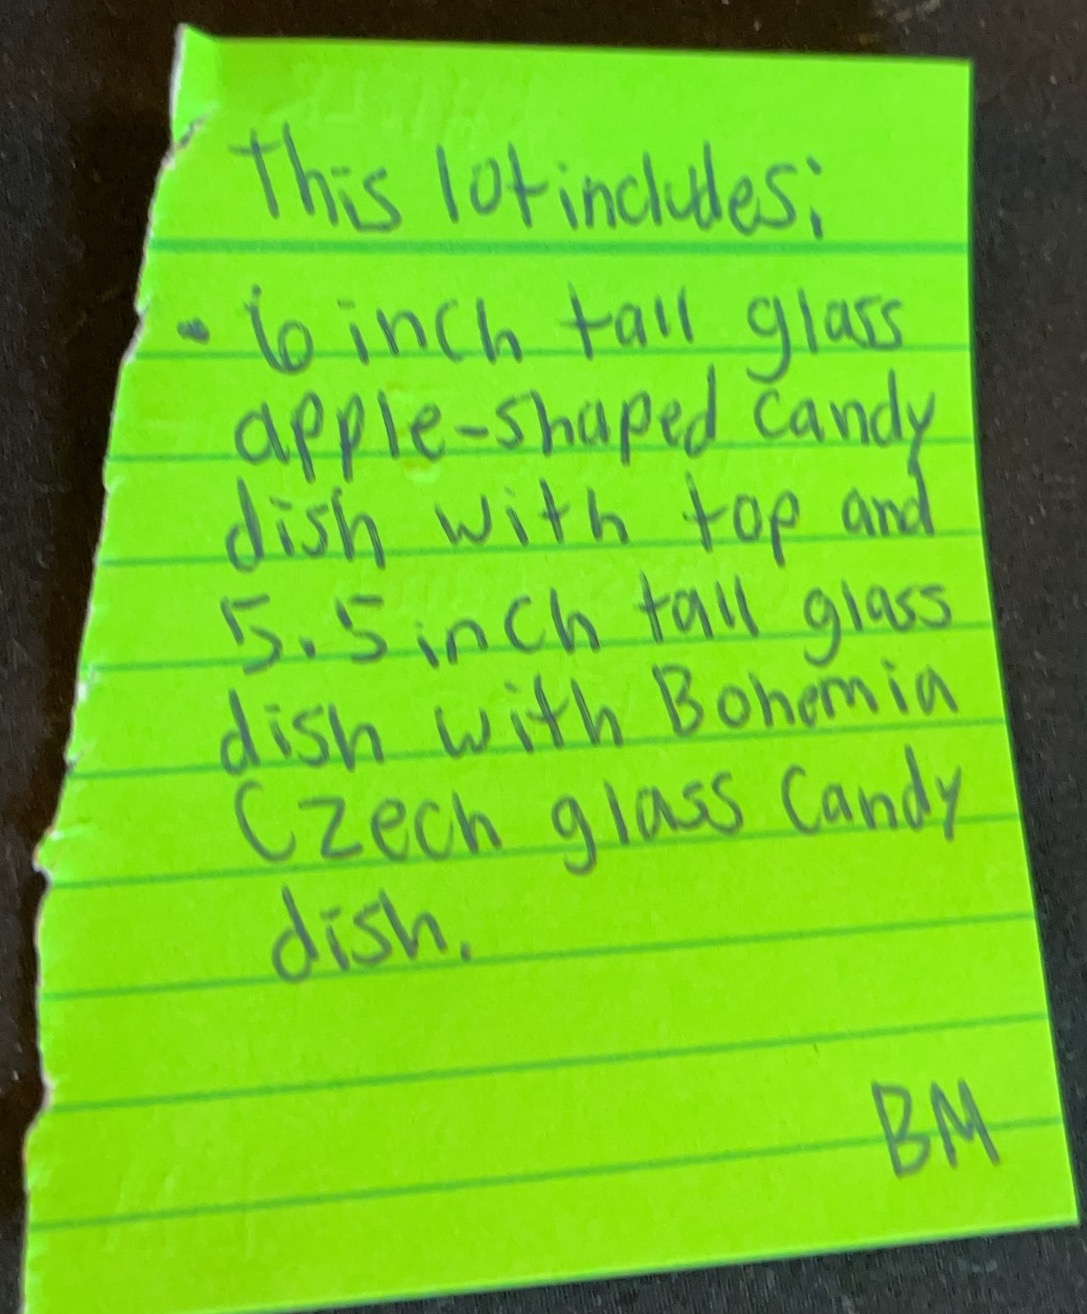 This lot includes:
• 6 inch tall glass
apple-shaped candy
dish with top and
5.5 inch tall glass
dish with Bohemia
Czech glass Candy
dish.
BM